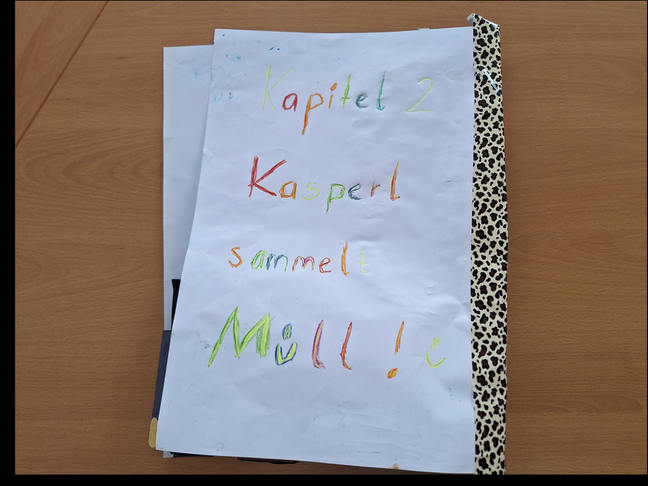 Kapitel 2
Kasperl
sammelt
Müll !